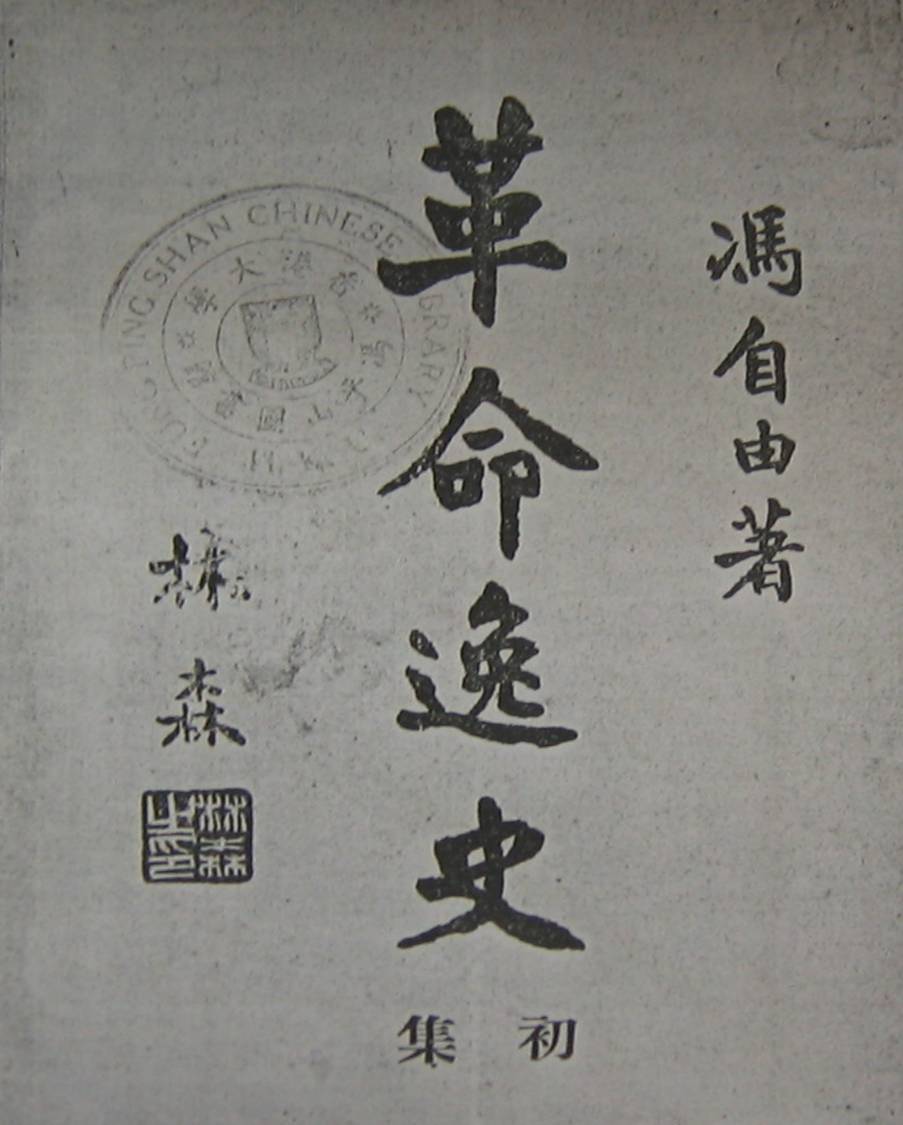 馮自由著
革命逸史
初集
林森
林森之印
FUNG PING SHAN CHINESE LIBRARY
香港大學
馮平山圖書館